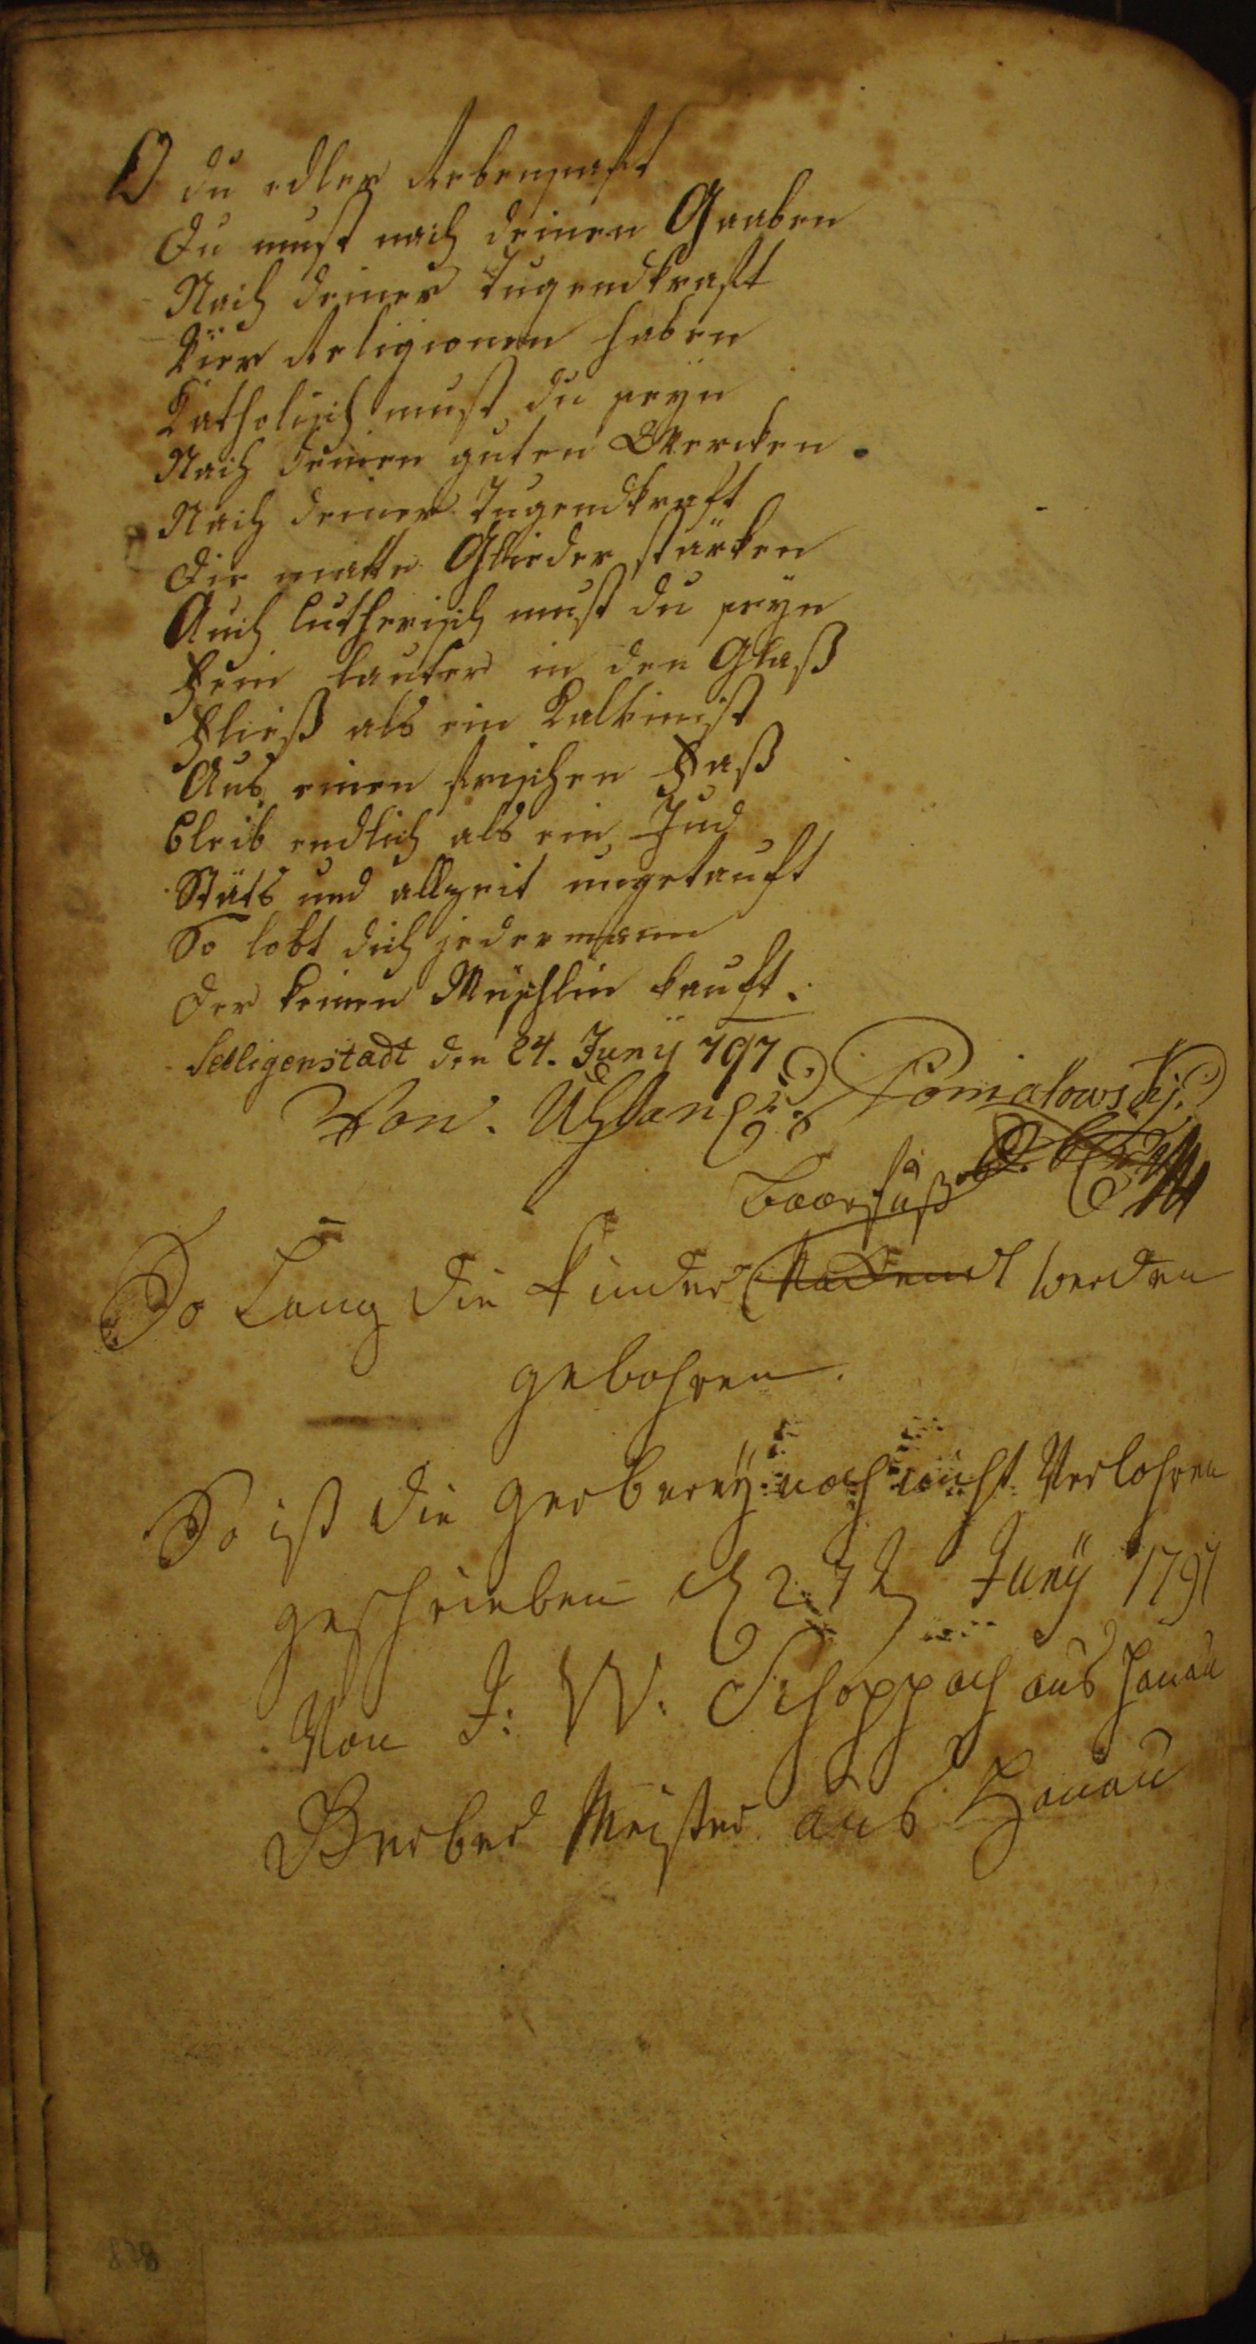 O du edler Rebensaft
Du must nach deinen Gaaben
Nach deiner Tugendkraft
Vier Religionen haben
Katholisch must du seyn
Nach deinen guten Wercken.
Nach deiner Tugendkraft
Die matte Glieder stärken
Auch lutherisch must du seyn
Fein lauter in den Glaß
Fließ als ein Kalvinist
Aus einen frischen Faß
bleib endlich als ein Jud
Stäts und allzeit ungetauft
So lobt dich jedermann
Der keinen Mischlin kauft.
Selligenstadt den 24. Junÿ 797
Von.
Baarfuß
So Lang die Kinder Nackend werden
gebohren.
So ist die gerbereÿ noch nicht Verlohren
geschrieben d 27 Junÿ 1797
Von J: W: Schoppach aus Hanau
Gerber Meister aus Hanau